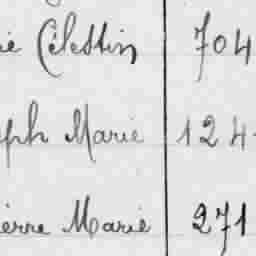 ie Célestin 704
eph Marie 124
ierre Marie 271